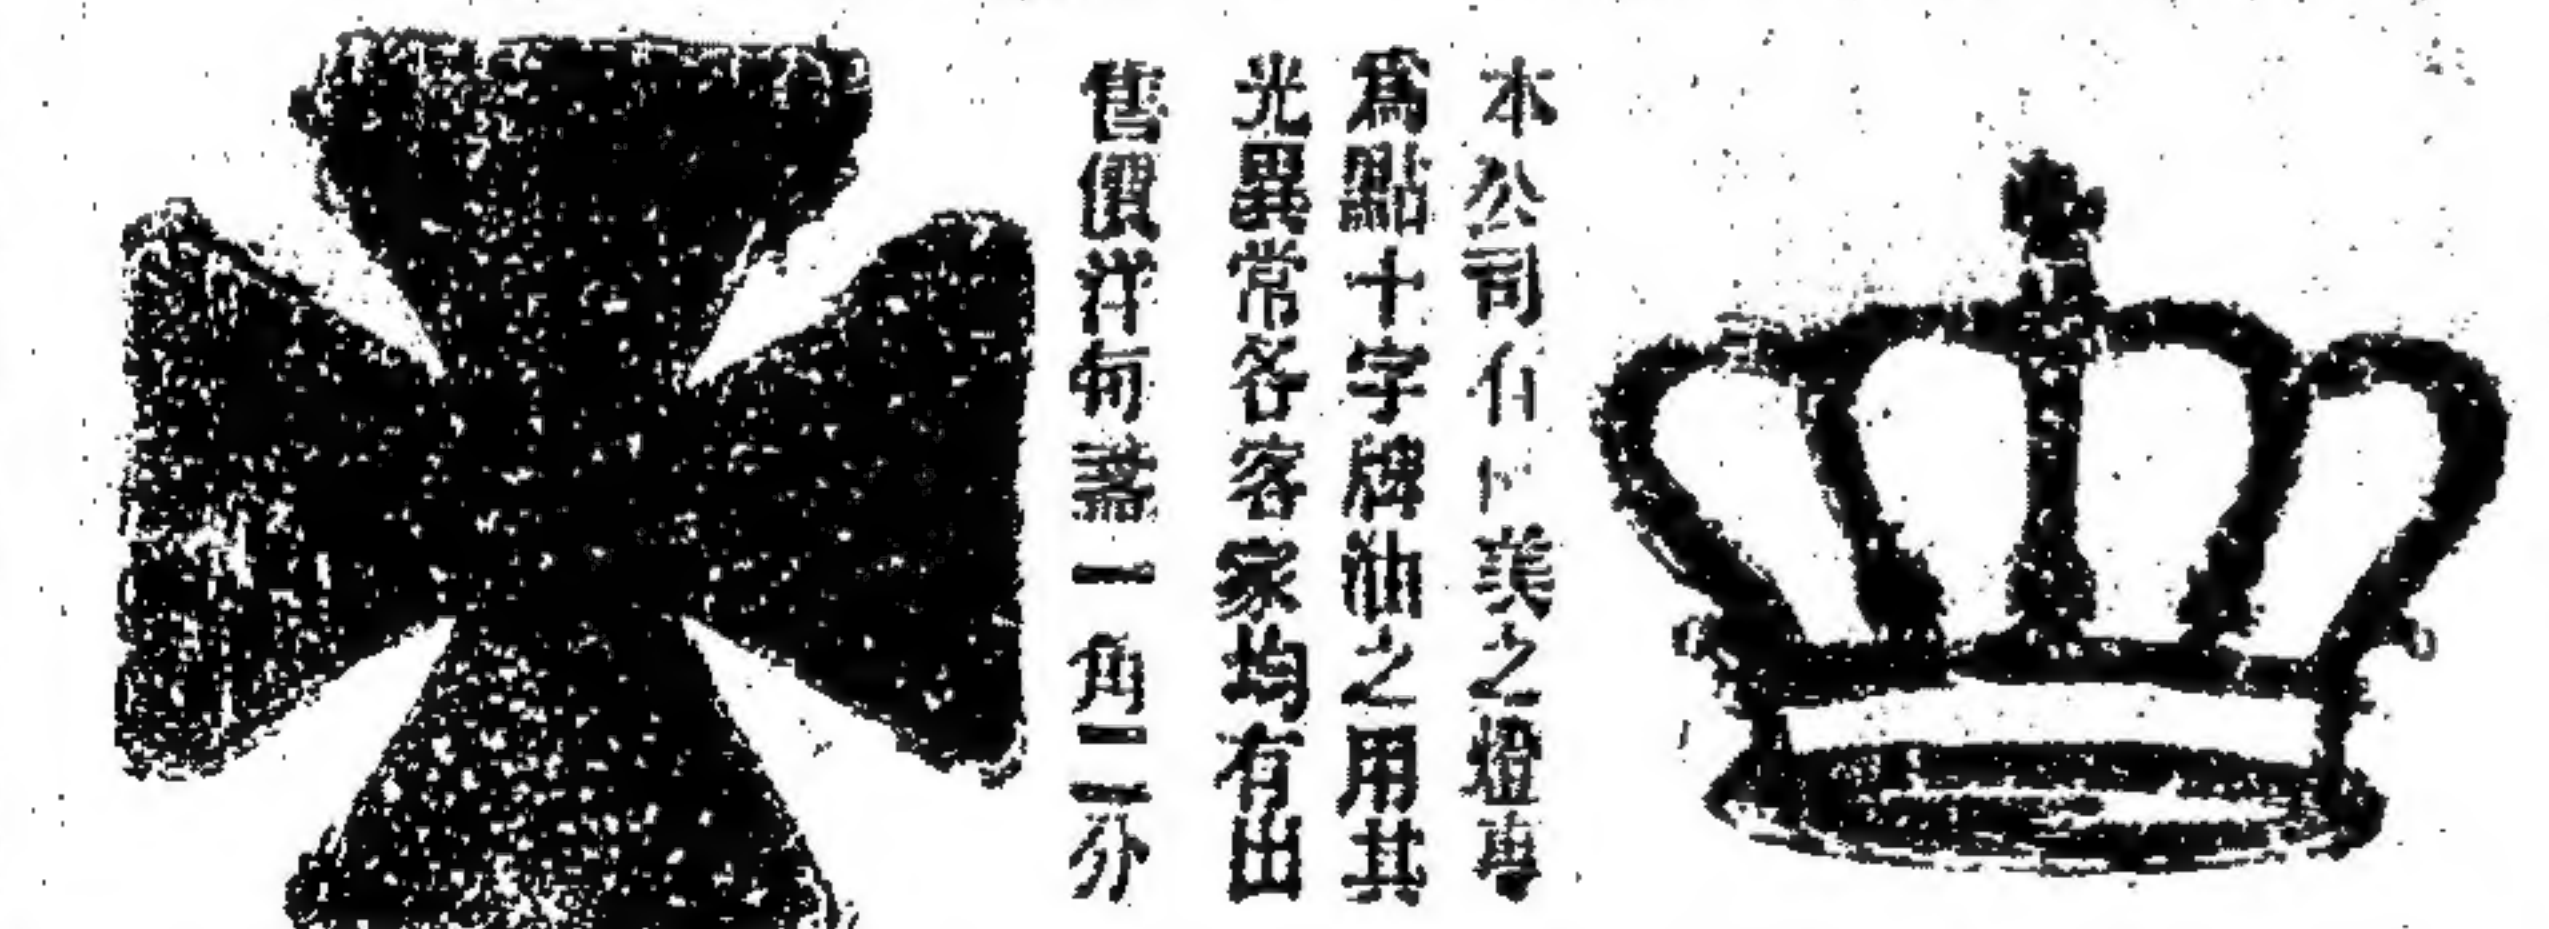 本公司有美之燈專
爲點十字牌油之用其
光異常各客家均有出
售價洋每盞一角二分